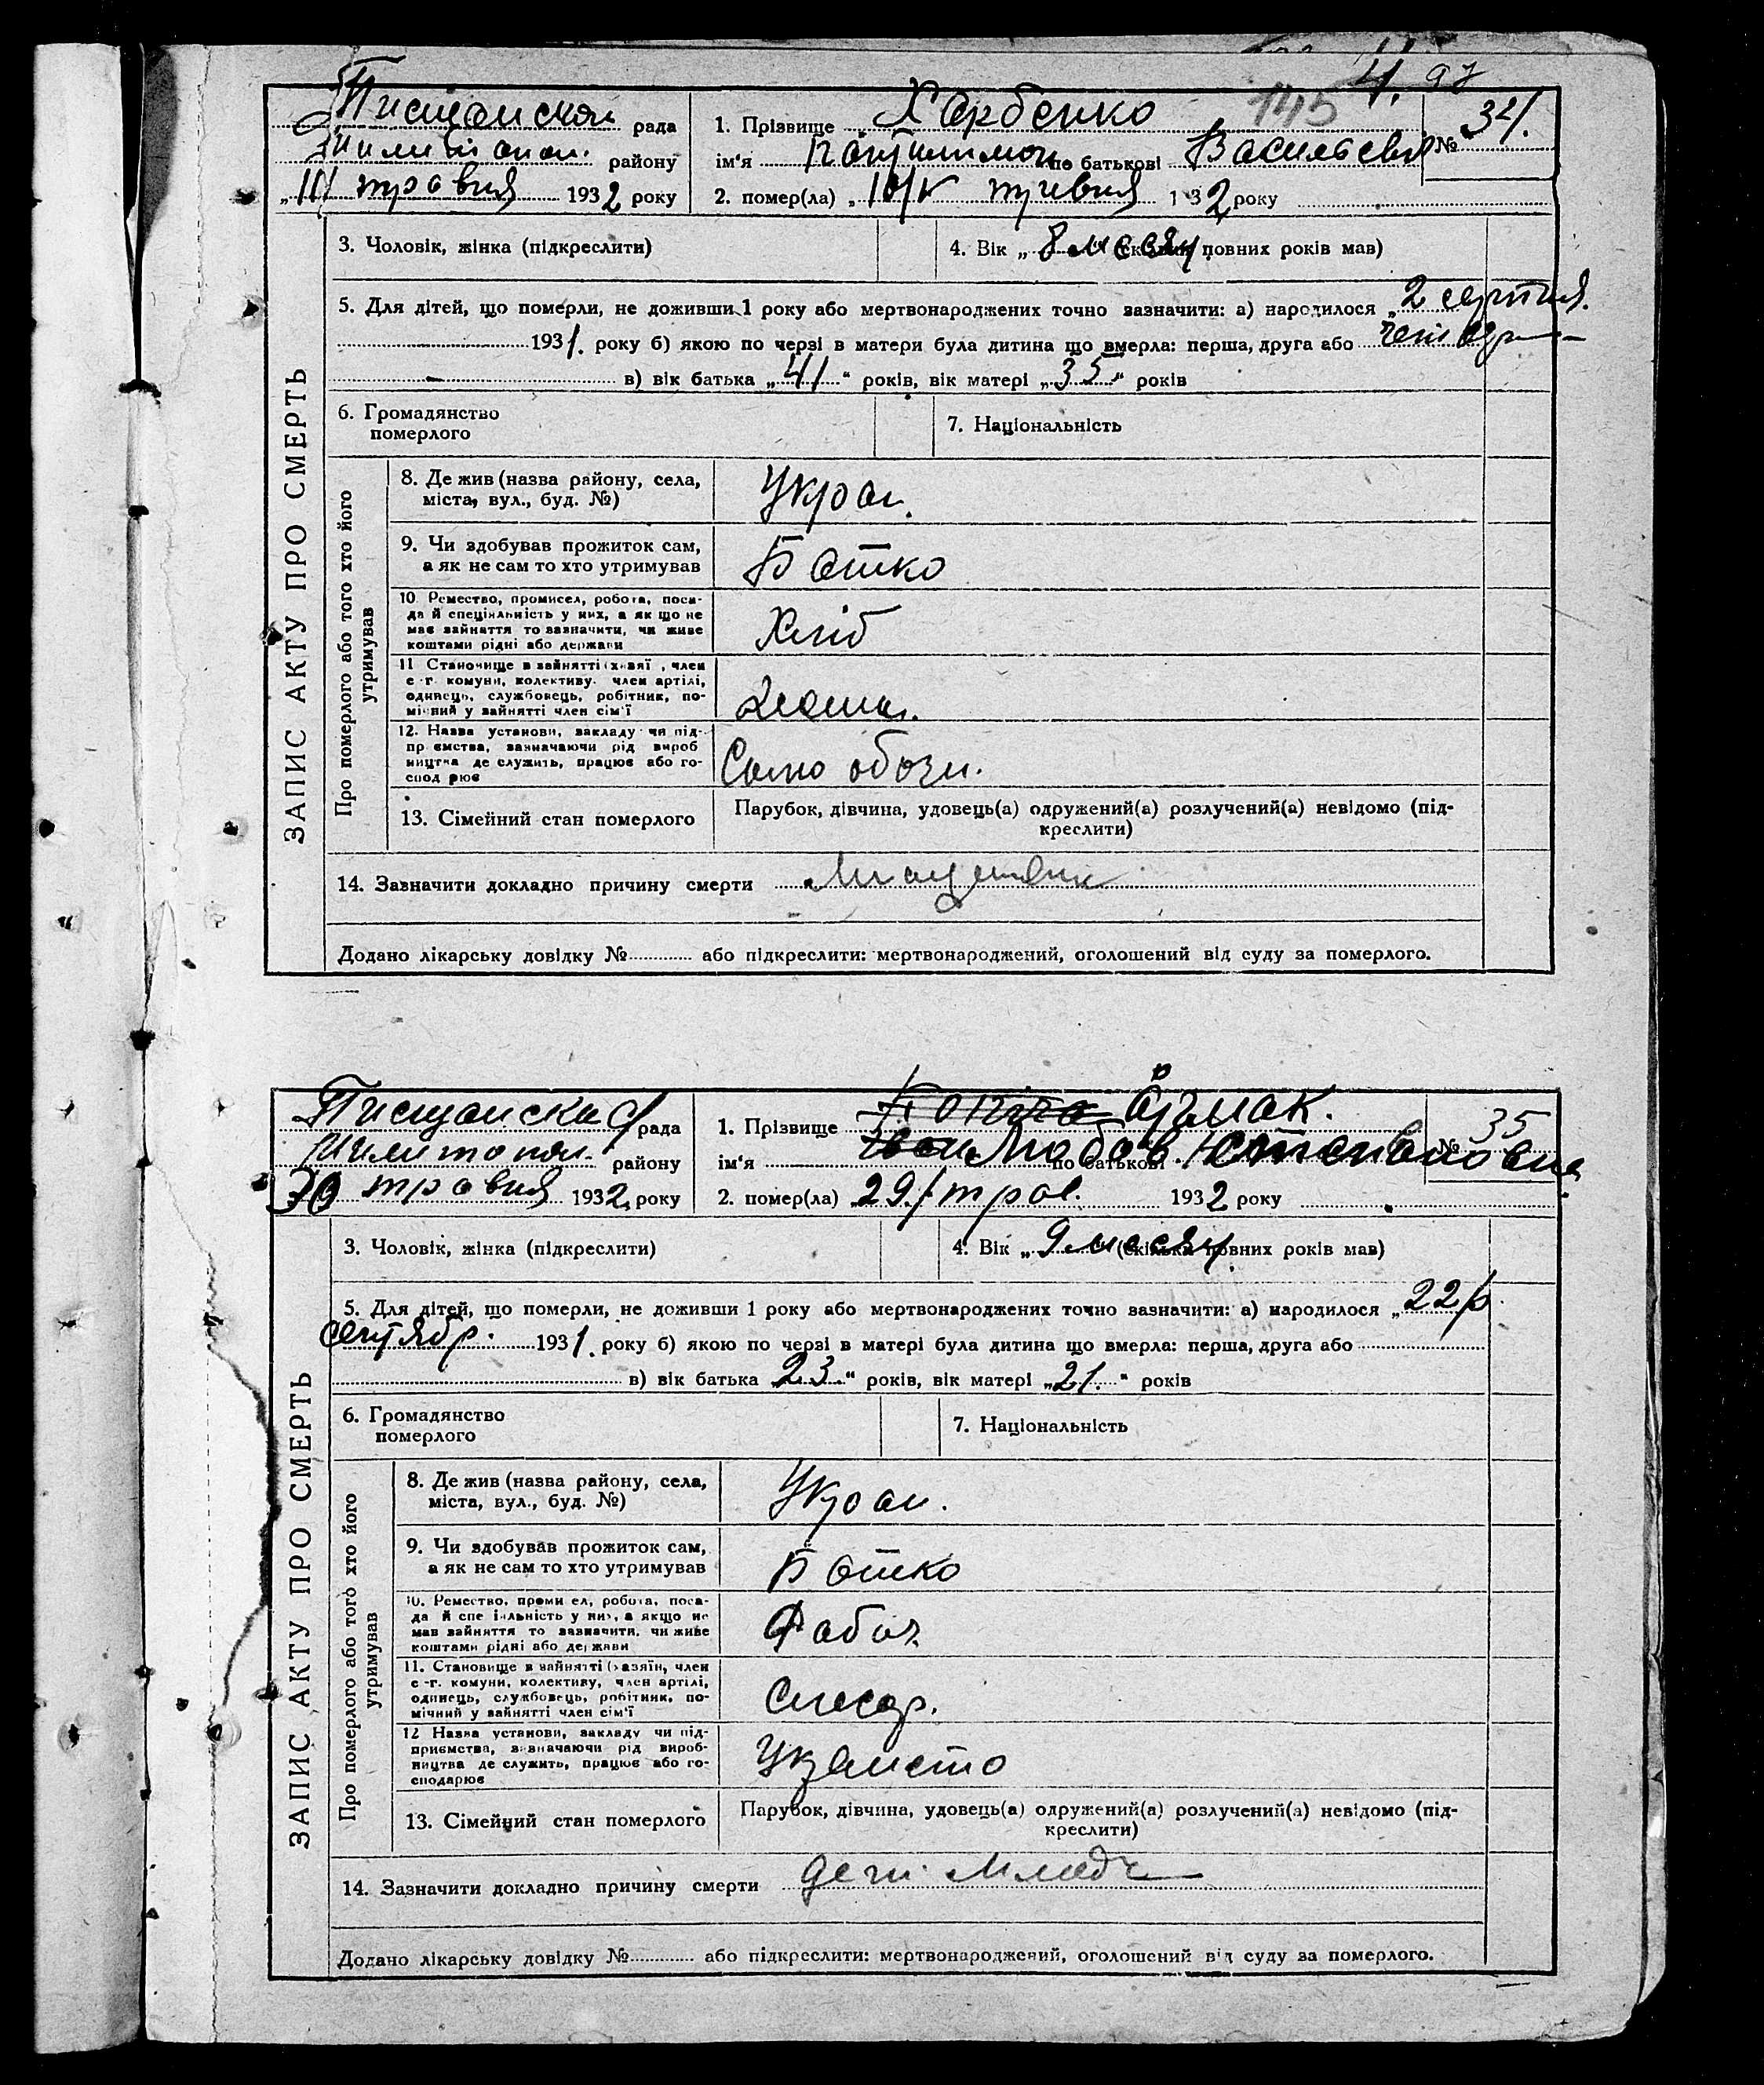 97
145
Пищанская рада
району
травня 1932 року
1. Прізвище Харбенко
№ 34.
ім'я по батькові Васильевич
2. помер(ла) 1932 року
ЗАПИС АКТУ ПРО СМЕРТЬ
3. Чоловік, жінка (підкреслити)
4. Вік „ 8 месяц (скільки повних років мав)
5. Для дітей, що померли, не доживши 1 року або мертвонароджених точно зазначити: а) народилося „ 2 серпня.
1931. року б) якою по черзі в матери була дитина що вмерла: перша, друга або
в) вік батька „41“ років, вік матері „35“ років
6. Громадянство померлого
7. Національність
Про померлого або того хто його утримував
8. Де жив (назва району, села, міста, вул., буд. №)
Украи.
9. Чи здобував прожиток сам, а як не сам то хто утримував
Батко
10. Ремество, промисел, робота, посада й спеціяльність у них, а як що не має зайняття то зазначити, чи живе коштами рідні або держави
Хліб
11. Становище в зайнятті (хазяї , член с.-г. комуни, колективу, член артілі, одинець, службовець, робітник, помічний у зайнятті член сім'ї
12. Назва установи, закладу чи підприємства, зазначаючи рід виробництва де служить, працює або господарює
13. Сімейний стан померлого
Парубок, дівчина, удовець(а) одружений(а) розлучений(а) невідомо (підкреслити)
14. Зазначити докладно причину смерти
Додано лікарську довідку № або підкреслити: мертвонароджений, оголошений від суду за померлого.
Пищанская рада
району
30 травня 1932 року
1. Прізвище Ярмак.
№ 35
ім'я Любов по батькові
2. помер(ла) 29/трав. 1932 року
ЗАПИС АКТУ ПРО СМЕРТЬ
3. Чоловік, жінка (підкреслити)
4. Вік „ 9 месяц (скільки повних років мав)
5. Для дітей, що померли, не доживши 1 року або мертвонароджених точно зазначити: а) народилося „ 22/
сентябр. 1931. року б) якою по черзі в матері була дитина що вмерла: перша, друга або
в) вік батька 23“ років, вік матері „21.“ років
6. Громадянство померлого
7. Національність
Про померлого або того хто його утримував
8. Де жив (назва району, села, міста, вул., буд. №)
Украи.
9. Чи здобував прожиток сам, а як не сам то хто утримував
Батко
10. Ремество, промисел, робота, посада й спеціяльність у них, а якщо не мав зайняття то зазначити, чи живе коштами рідні або держави
Рабоч
11. Становище в зайнятті (хазяїн, член с.-г. комуни, колективу, член артілі, одинець, службовець, робітник, помічний у зайнятті член сім'ї
Слесар.
12 Назва установи, закладу чи підприємства, зазначаючи рід виробництва де служить, працює або господарює
13. Сімейний стан померлого
Парубок, дівчина, удовець(а) одружений(а) розлучений(а) невідомо (підкреслити)
14. Зазначити докладно причину смерти
Додано лікарську довідку № або підкреслити: мертвонароджений, оголошений від суду за померлого.